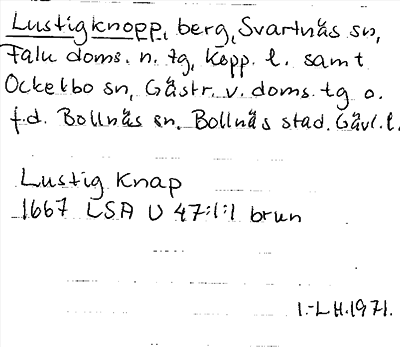 Lustigknopp, berg, Svartnäs sn,
Falu doms. n. tg, Kopp. l. samt
Ockelbo sn, Gästr. v. doms. tg o.
f.d. Bollnäs sn. Bollnäs stad. Gävl. l.
Lustig Knap
1667 LSA U 47:1:1 brun
I.-L.H. 1971.